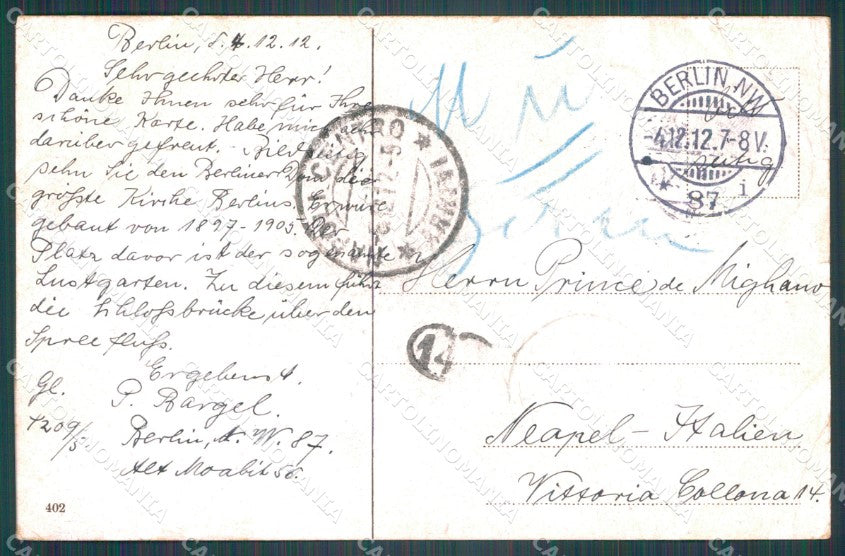 Berlin, d. 4.12.12.
Sehr geehrter Herr!
Danke Ihnen sehr für Ihre
schöne Karte. Habe mich sehr
darüber gefreut. - Bildlich
sehn Sie den Berliner Dom die
größte Kirche Berlins. Er wurde
gebaut von 1897-1905. Der
Platz davor ist der sogenannte
Lustgarten. Zu diesem führt
die Schloßbrücke über den
Spree fluß.
Ergebenst.
Gl. P. Bargel.
1209/5 Berlin, N. W. 87.
Alt Moabit 56.
402
BERLIN.NW
-4.12.12.7-8V.
* 87 i
CENTRO
14
Herrn Prince de Mighano
Neapel - Italien
Vittoria Collona 14.
CARTOLINOMANIA